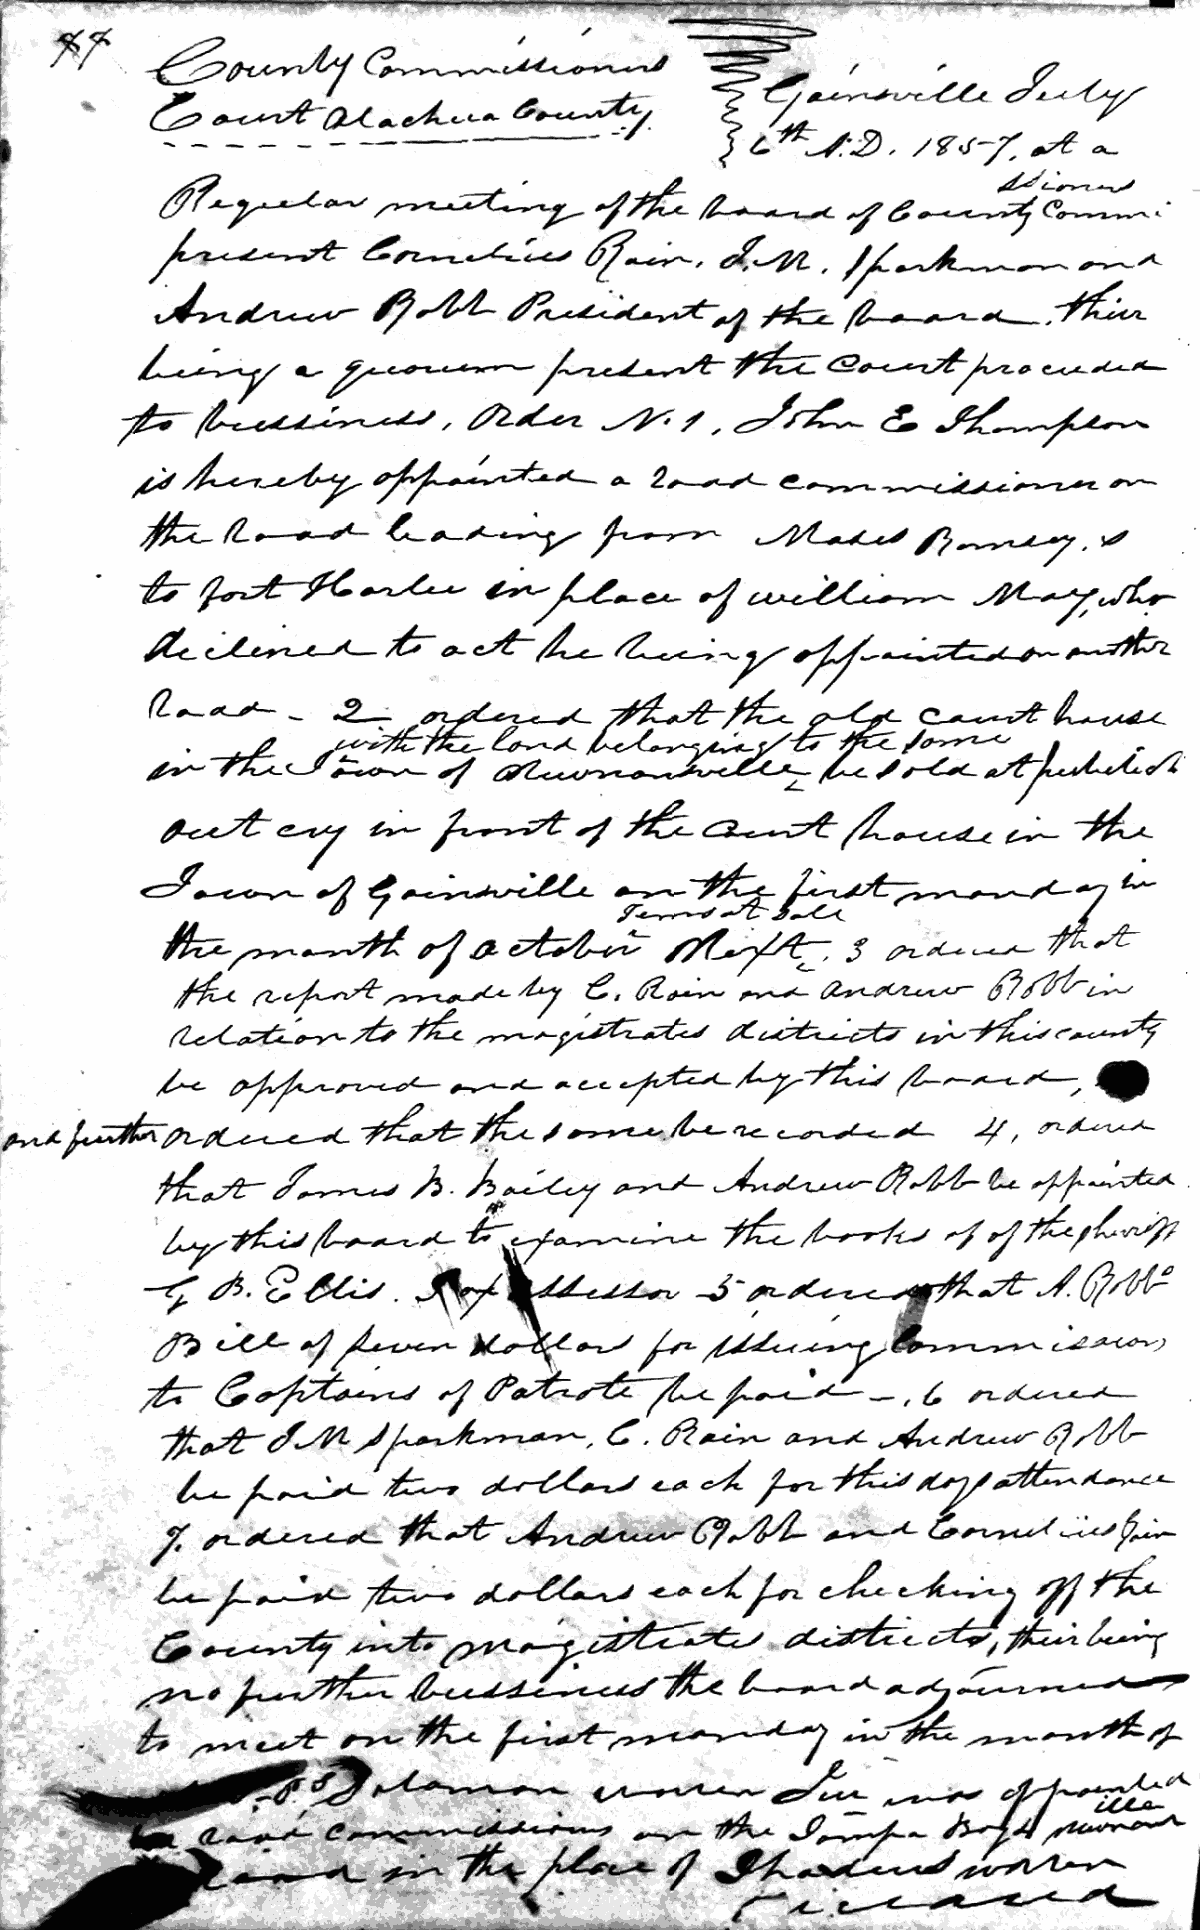 77
County Commissioners
Court Alachua County
Gainsville July
6th A.D. 1857, at a
Regular meeting of the board of County Commissioners
present Cornelius Rain, J.M. Sparkman and
Andrew Robb President of the board. thier
being a quorum present the Court proceded
to bussiness, Order No. 1, John E Thompson
is hereby appointed a road commissioner on
the road leading from Moses Ramsey,s
to fort Harlee in place of william May, who
declined to act he being appointed on another
road - 2 ordered that the old court house
with the land belonging to the same
in the Town of Newnansville, be sold at publick
out cry in front of the Court house in the
Town of Gainsville on the first monday in
Terms at Sale
the month of October Next. 3 ordered that
the report made by C. Rain and Andrew Robb in
relation to the magistrates districts in this county
be approved and accepted by this board,
and further ordered that the same be recorded 4, ordered
that James B. Bailey and Andrew Robb be appointed
by this board to examine the books of of the sheriff
B. Ellis. Tax Assessor 5 ordered that A. Robbs
Bill of seven dollars for issuing Commissions
to Captains of Patrole be paid -, 6 ordered
that J M Sparkman, C. Rain and Andrew Robb
be paid two dollars each for this days attendance
7. ordered that Andrew Robb and Cornelius Rain
be paid two dollars each for checking off the
County into magistrates districts, their being
no further bussiness the board adjourned
to meet on the first monday in the month of
P.S Solaman warren Jur was appointed
road commissions on the Tampa Bay & Newnansville
road in the place of Thadeus warren